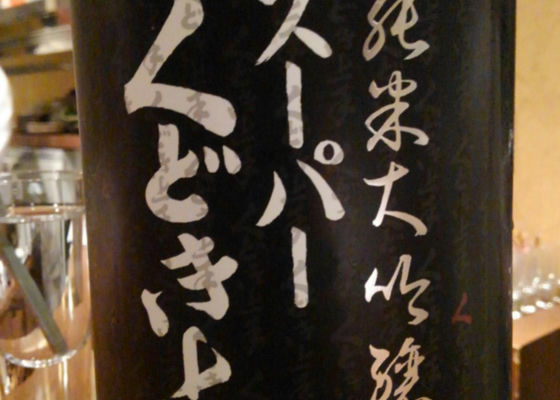 純米大吟醸
スーパー
くどき上